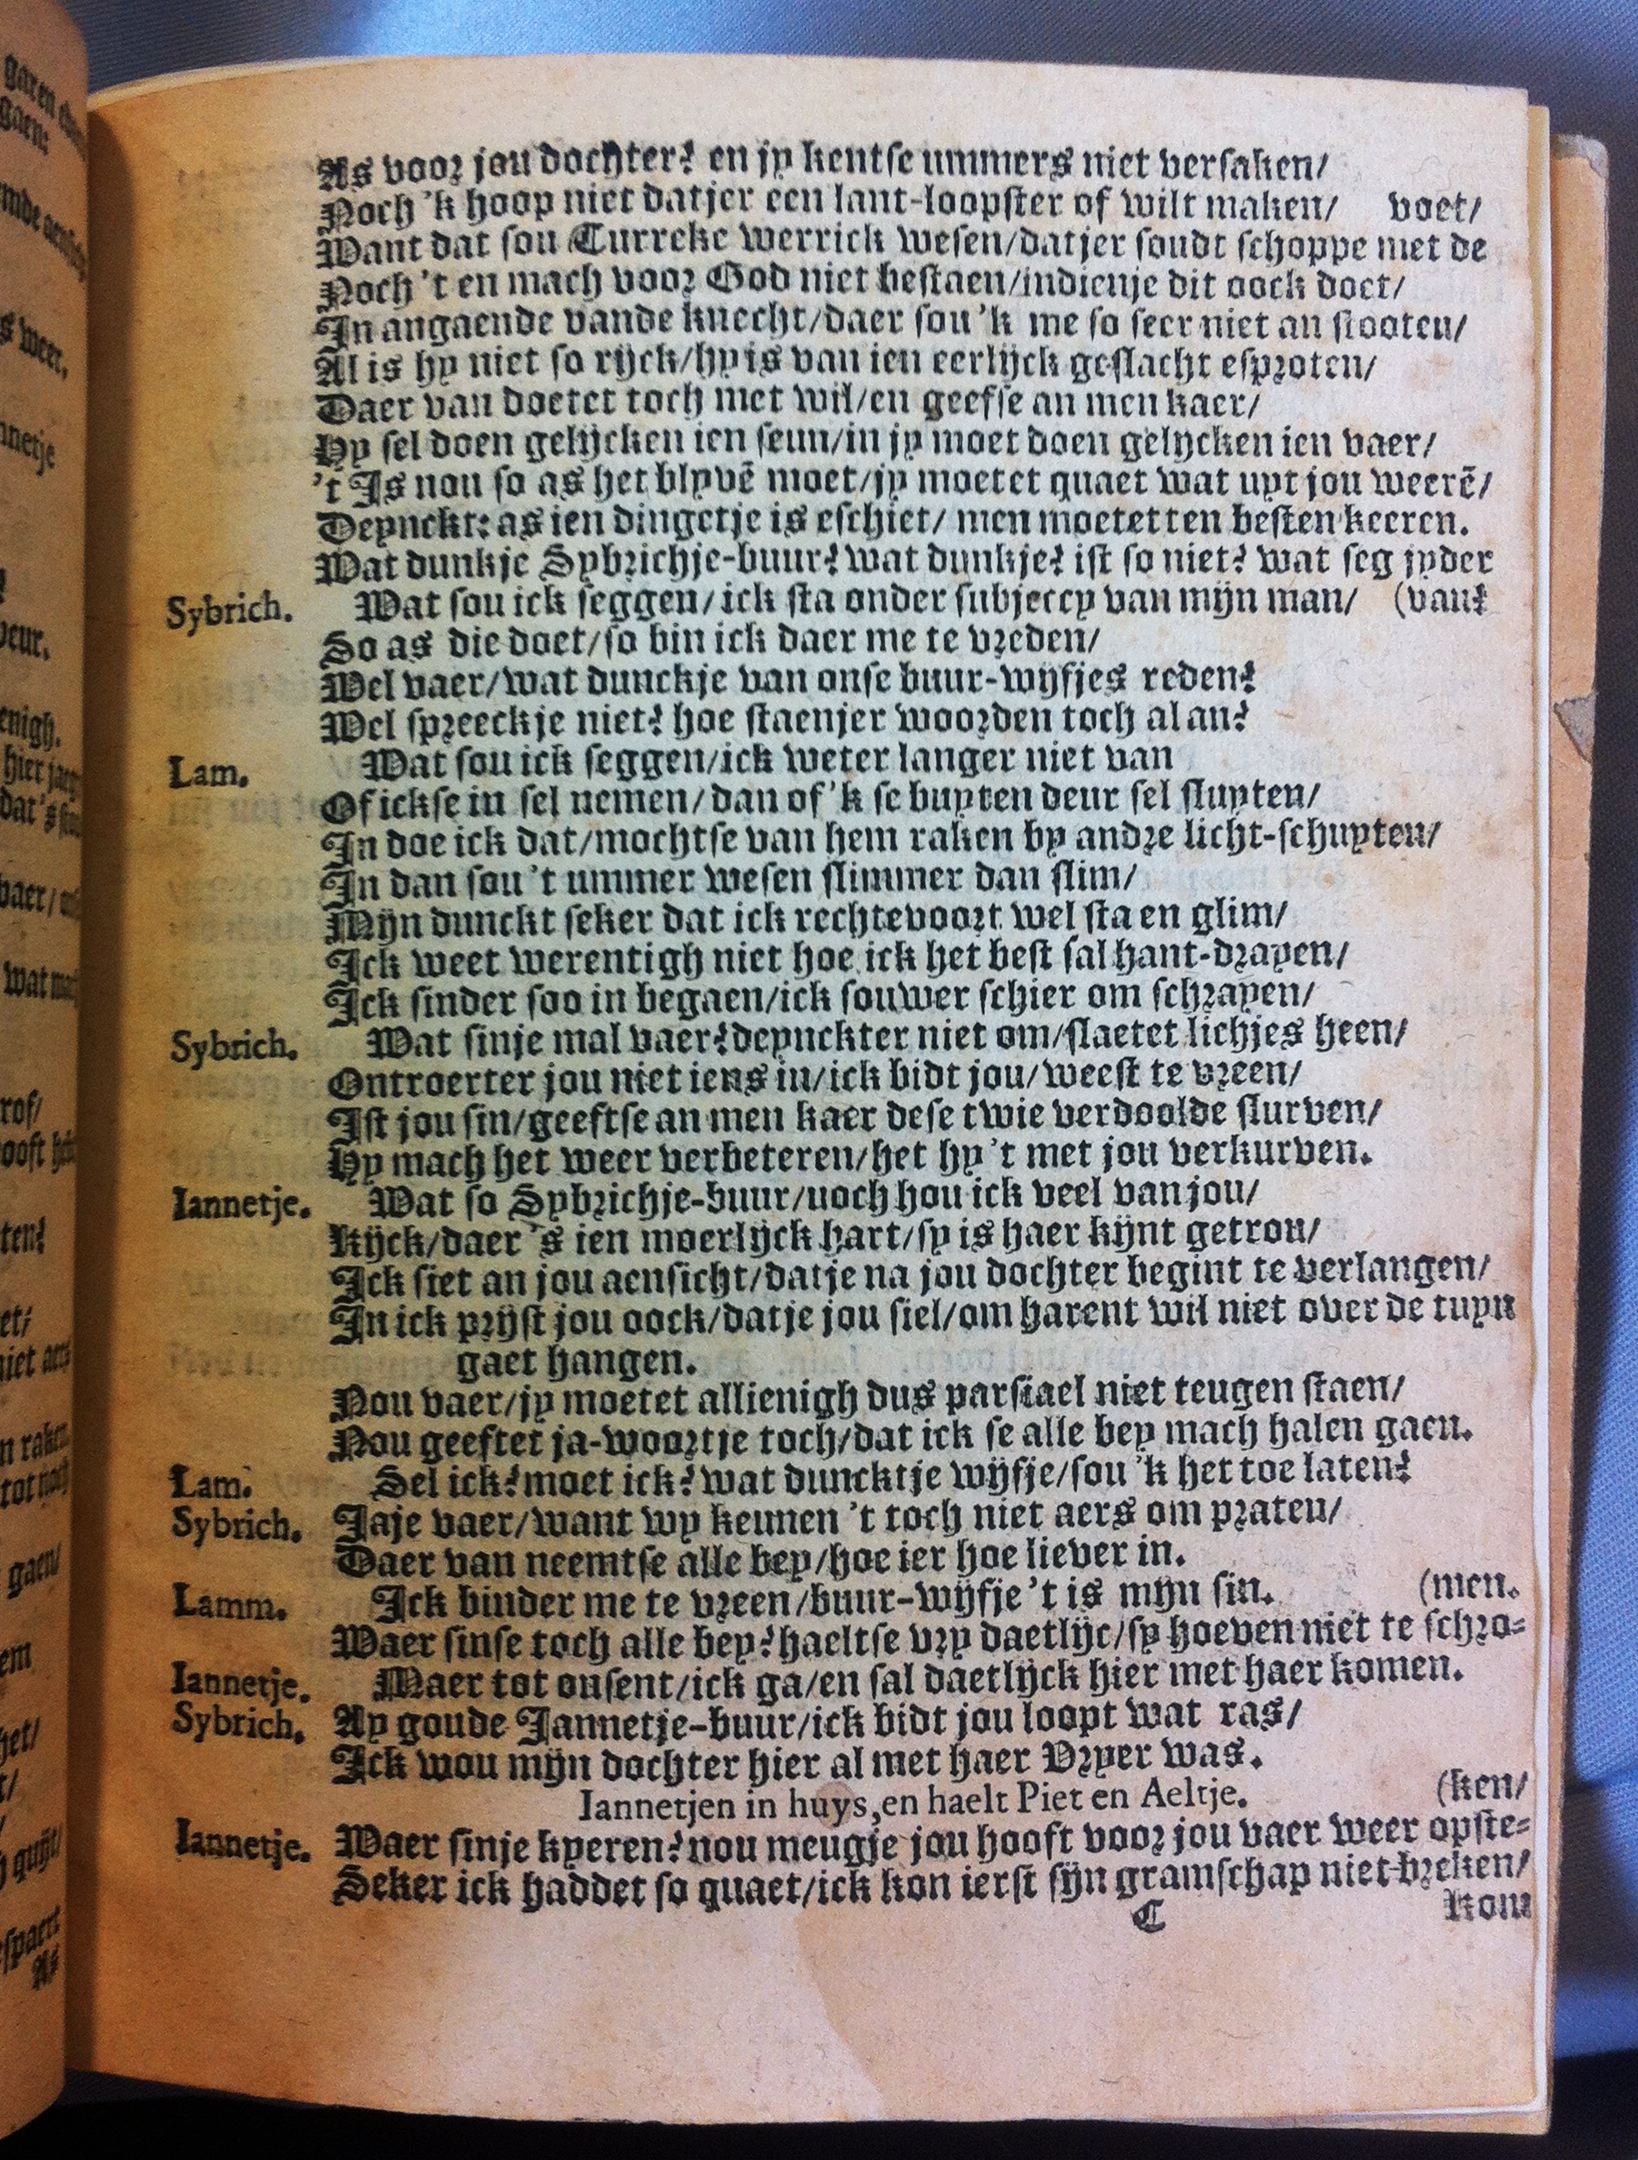 As voor jou dochter? en jy kentse ummers niet versaken/
Noch 'k hoop niet datjer een lant-loopster of wilt maken/ voet/
Want dat sou Turreke werrick wesen/datjer soudt schoppe met de
Noch 't en mach voor God niet bestaen/indienje dit oock doet/
In angaende vande knecht/daer sou 'k me so seer niet an stooten/
Al is hy niet so rijck/hy is van ien eerlijck geslacht esproten/
Daer van doetet toch met wil/en geefse an men kaer/
Hy sel doen gelijcken ien seun/in jy moet doen gelycken ien vaer/
't Is nou so as het blyvē moet/jy moetet quaet wat uyt jou weerē/
Deynckt: as ien dingetje is eschiet/ men moetet ten besten keeren.
Wat dunkje Sybrichje-buur? wat dunkje? ist so niet? wat seg jyder
Sybrich. Wat sou ick seggen/ick sta onder subjeccy van mijn man/ (van?
So as die doet/so bin ick daer me te vreden/
Wel vaer/wat dunckje van onse buur-wijfjes reden?
Wel spreeckje niet? hoe staenjer woorden toch al an?
Lam. Wat sou ick seggen/ick weter langer niet van
Of ickse in sel nemen/dan of 'k se buyten deur sel sluyten/
In doe ick dat/mochtse van hem raken by andre licht-schuyten/
In dan sou 't ummer wesen slimmer dan slim/
Mijn dunckt seker dat ick rechtevoort wel sta en glim/
Ick weet werentigh niet hoe ick het best sal hant-drayen/
Ick sinder soo in begaen/ick souwer schier om schrayen/
Sybrich. Wat sinje mal vaer? deynckter niet om/slaetet lichjes heen/
Ontroerter jou niet iens in/ick bidt jou/weest te vreen/
Ist jou sin/geeftse an men kaer dese twie verdoolde slurven/
Hy mach het weer verbeteren/het hy 't met jou verkurven.
Iannetje. Wat so Sybrichje-buur/noch hou ick veel van jou/
Kijck/daer 's ien moerlijck hart/sy is haer kijnt getrou/
Ick siet an jou aensicht/datje na jou dochter begint te verlangen/
In ick prijst jou oock/datje jou siel/om harent wil niet over de tuyn
gaet hangen.
Nou vaer/jy moetet allienigh dus parsiael niet teugen staen/
Nou geeftet ja-woortje toch/dat ick se alle bey mach halen gaen.
Lam. Sel ick? moet ick? wat duncktje wijfje/sou 'k het toe laten?
Sybrich. Jaje vaer/want wy kennen 't toch niet aers om praten/
Daer van neemtse alle bey/hoe ier hoe liever in.
Lamm. Ick binder me te vreen/buur-wijfje 't is mijn sin. (men.
Waer sinse toch alle bey? haeltse vry daetlijc/sy hoeven niet te schro-
Iannetje. Maer tot onsent/ick ga/en sal daetlijck hier met haer komen.
Sybrich. Ay goude Jannetje-buur/ick bidt jou loopt wat ras/
Ick wou mijn dochter hier al met haer Vryer was.
Iannetjen in huys, en haelt Piet en Aeltje. (ken/
Iannetje. Waer sinje kyeren? nou meugje jou hooft voor jou vaer weer opste-
Seker ick haddet so quaet/ick kon ierst sijn gramschap niet breken/
C Kom